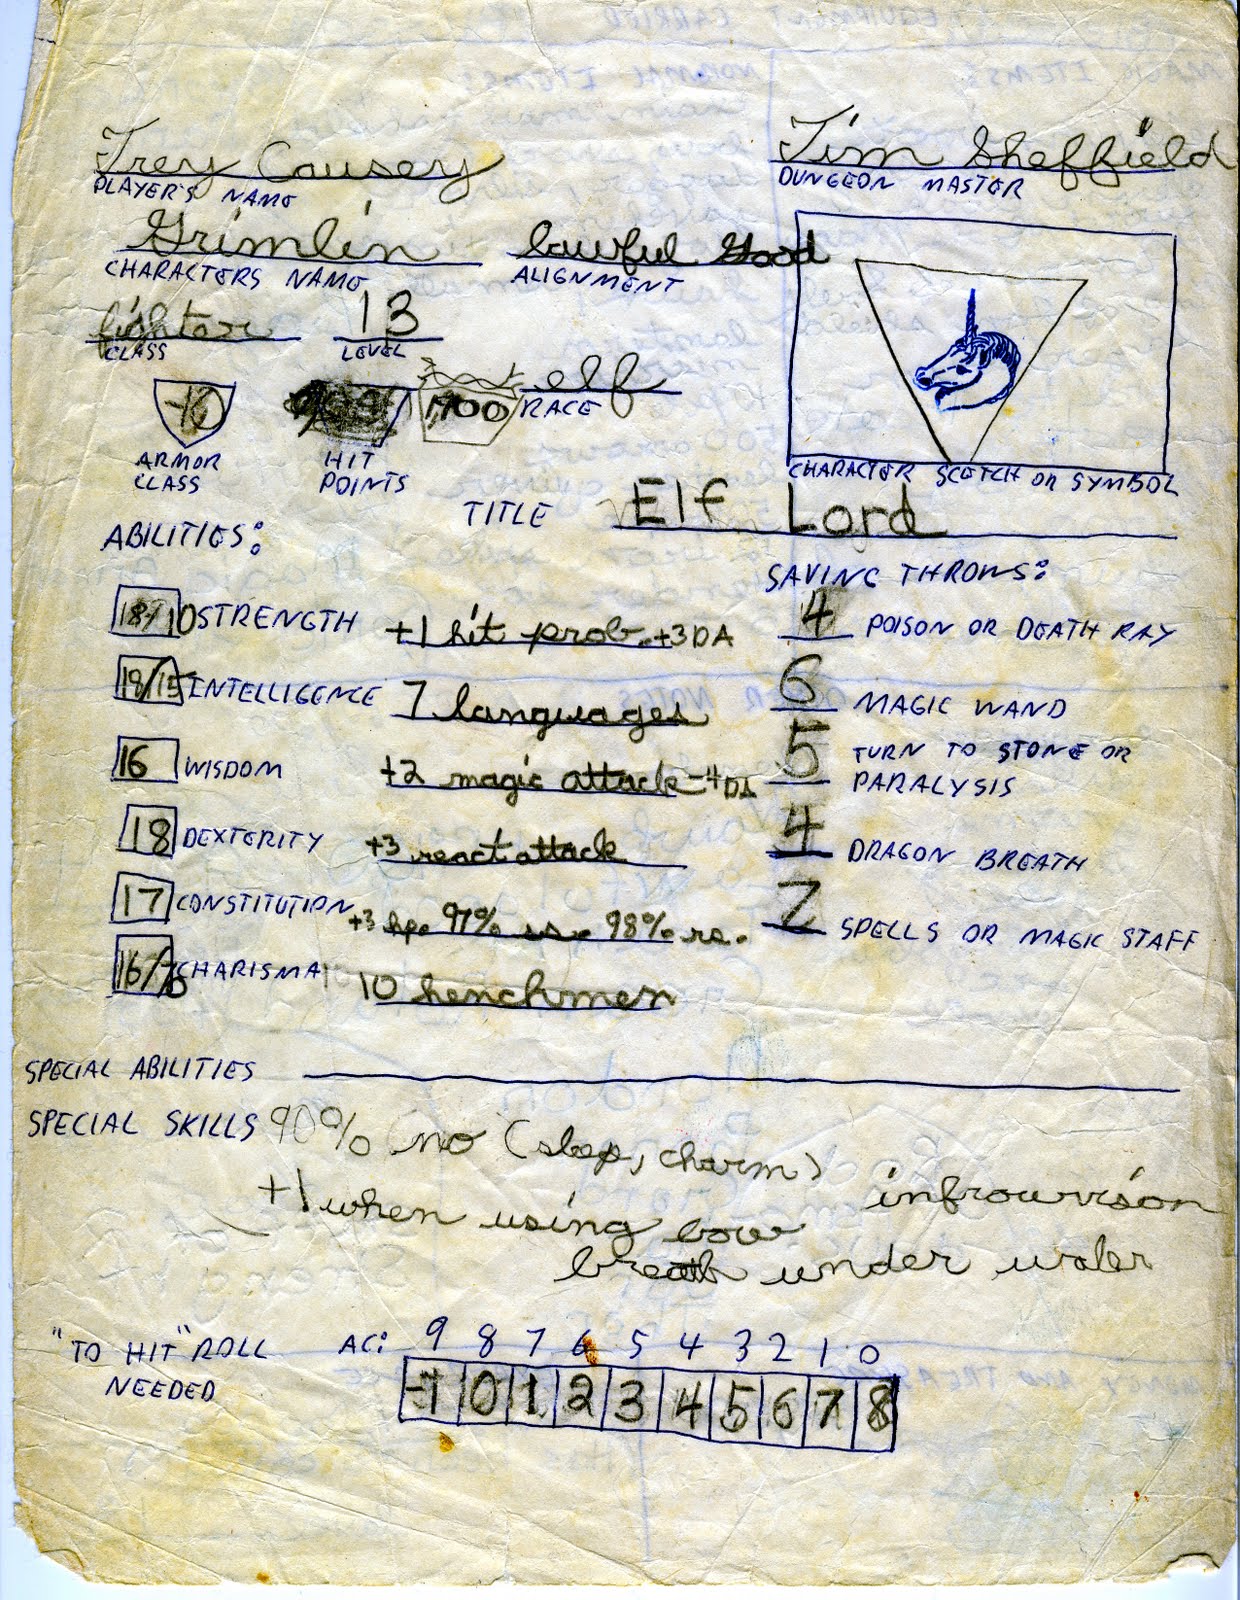 Trey Causey
PLAYER'S NAME
Tim Sheffield
DUNGEON MASTER
Grimlin
CHARACTERS NAME
lawful Good
ALIGNMENT
fighter
CLASS
13
LEVEL
elf
RACE
-10
ARMOR
CLASS
HIT
POINTS
1700
CHARACTER SCETCH OR SYMBOL
TITLE Elf Lord
ABILITIES:
18/10 STRENGTH +1 hit prob. +3 DA
18/15 INTELLIGENCE 7 languages
16 WISDOM +2 magic attack -4 DA
18 DEXTERITY +3 react attack
17 CONSTITUTION +3 hp. 97% ss. 98% rs.
16/ CHARISMA 10 henchmen
SAVING THROWS:
4 POISON OR DEATH RAY
6 MAGIC WAND
5 TURN TO STONE OR
PARALYSIS
4 DRAGON BREATH
7 SPELLS OR MAGIC STAFF
SPECIAL ABILITIES
SPECIAL SKILLS 90% no (slep, charm)
+1 when using bow infrouvision
breath under water
"TO HIT" ROLL AC: 9 8 7 6 5 4 3 2 1 0
NEEDED -1 0 1 2 3 4 5 6 7 8